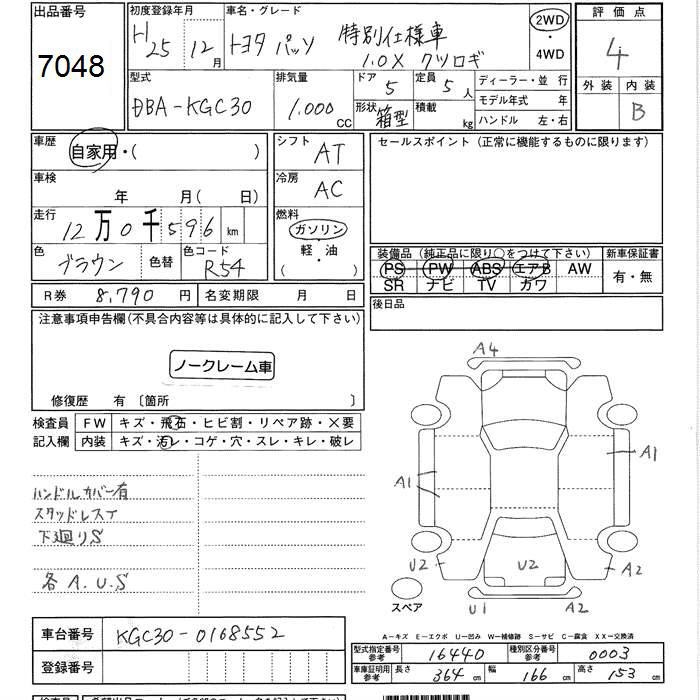 出品番号
7048
初度登録年月
H25年 12月
車名・グレード
トヨタ パッソ 特別仕様車
1.0X クツロギ
2WD
・
4WD
評価点
4
外装 内装
B
型式
DBA-KGC30
排気量
1.000 CC
ドア 5
定員 5 人
形状 箱型
積載 kg
ディーラー・並行
モデル年式 年
ハンドル 左・右
車歴
自家用・( )
シフト
AT
車検
年 月( 日)
冷房
AC
走行
12万0千596 km
燃料
ガソリン
・
軽・油
( )
色
ブラウン
色替
色コード
R54
セールスポイント(正常に機能するものに限ります)
装備品(純正品に限り○をつけて下さい)
PS PW ABS エアB AW
SR ナビ TV カワ
新車保証書
有・無
R券 8,790 円 名変期限 月 日
後日品
注意事項申告欄(不具合内容等は具体的に記入して下さい)
ノークレーム車
修復歴 有〔箇所 〕
検査員
記入欄
FW キズ・飛石・ヒビ割・リペア跡・×要
内装 キズ・汚レ・コゲ・穴・スレ・キレ・破レ
ハンドルカバー有
スタッドレスT
下廻りS
各A.U.S
A4
A1
A1
U2
U2
A2
U1
A2
スペア
A-キズ E-エクボ U-凹み W-補修跡 S-サビ C-腐食 XX-交換済
車台番号 KGC30-0168552
登録番号
型式指定番号
参考
16440
種別区分番号
参考
0003
車庫証明用
参考
長さ 364 cm 幅 166 cm 高さ 153 cm